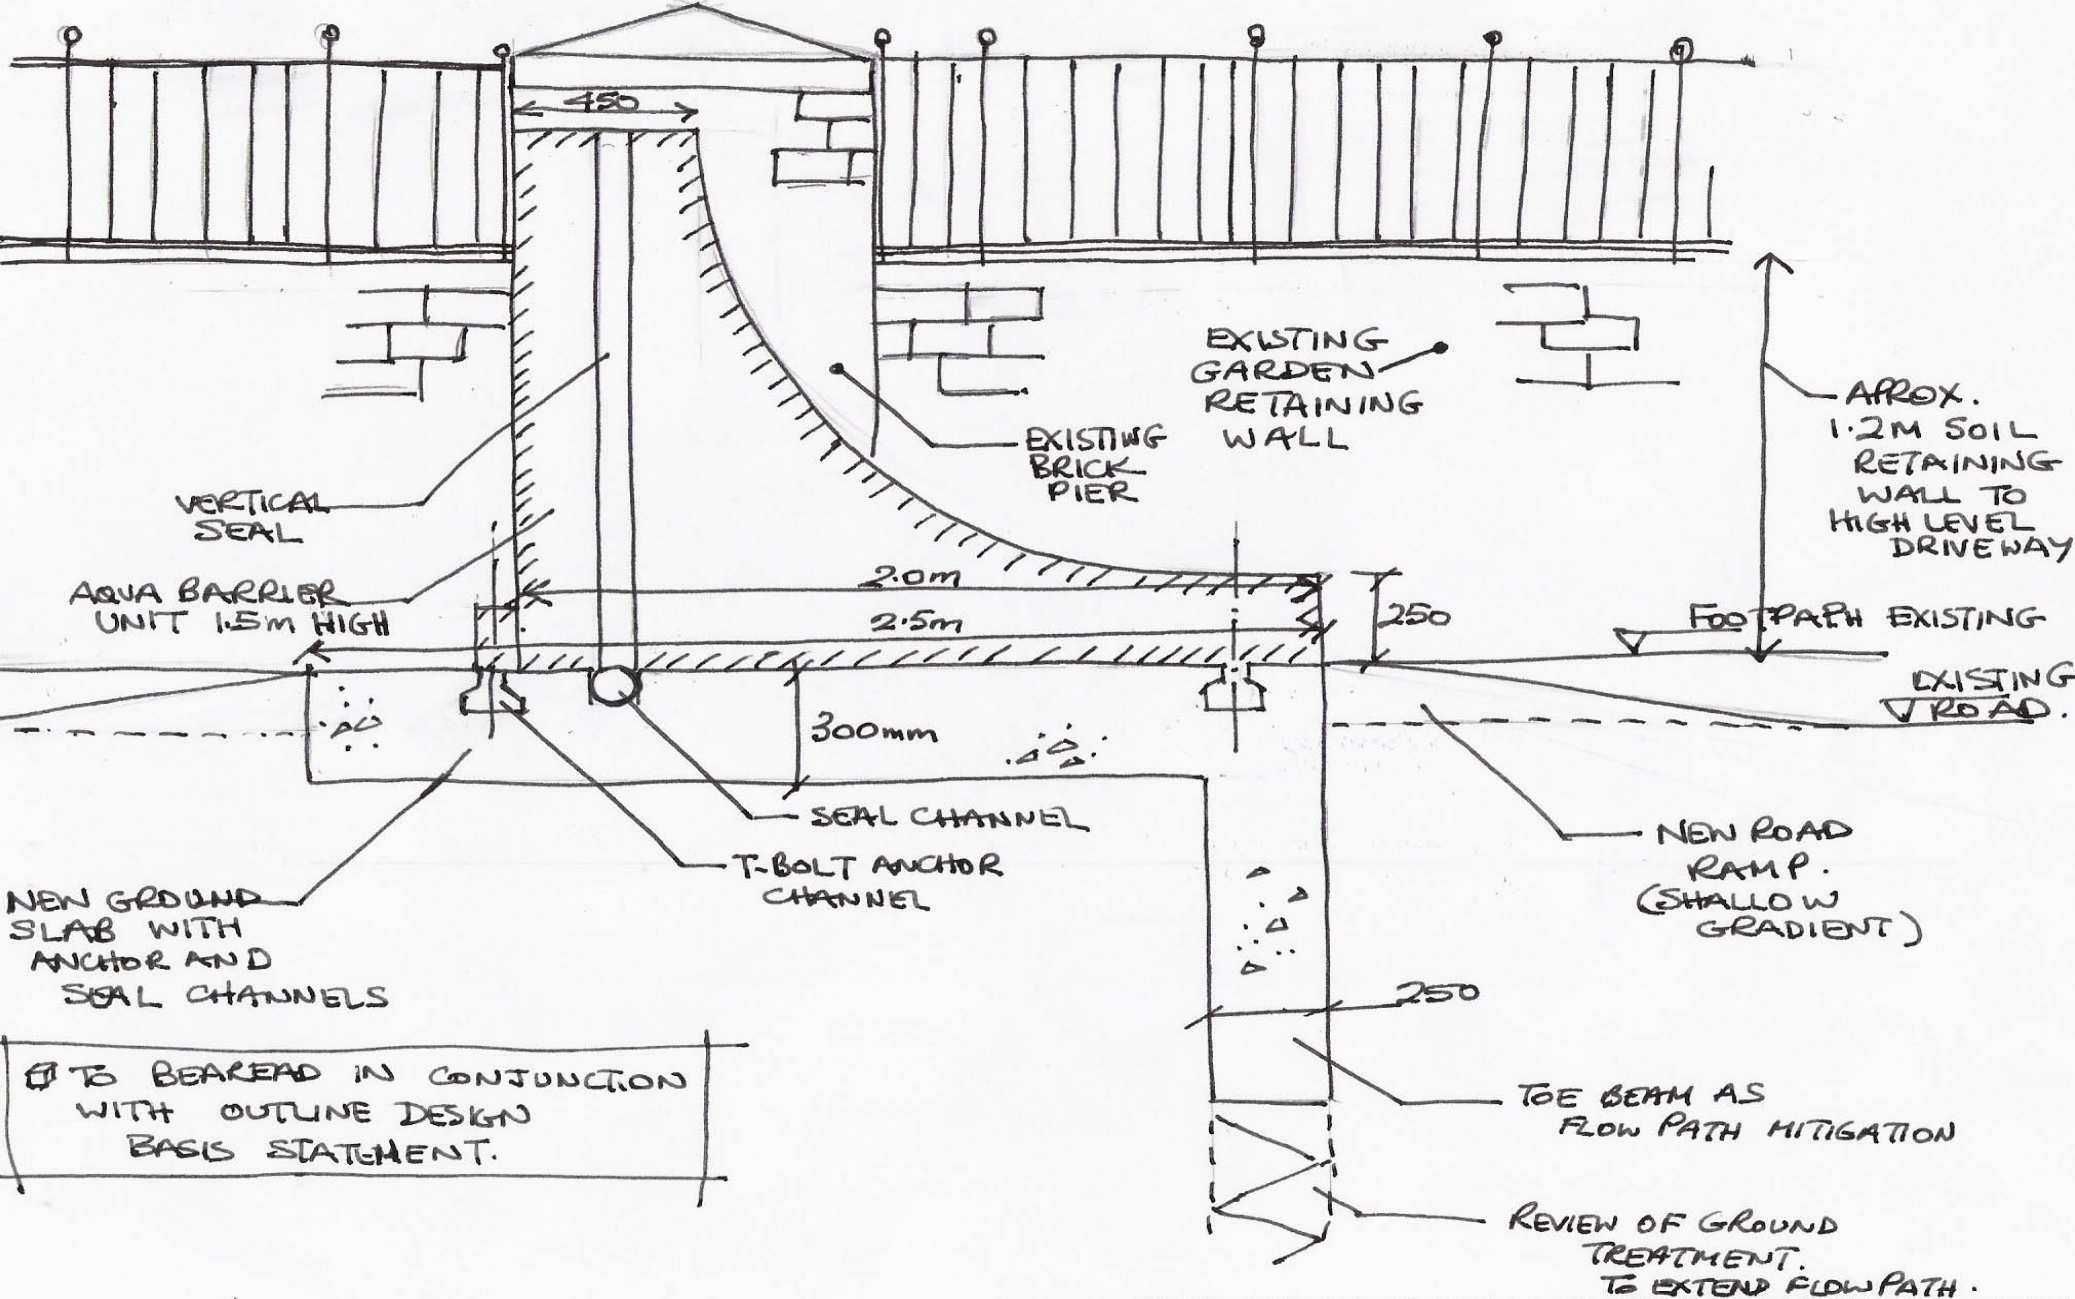 450
EXISTING
GARDEN
RETAINING
WALL
APROX.
1.2M SOIL
RETAINING
WALL TO
HIGH LEVEL
DRIVEWAY
EXISTING
BRICK
PIER
VERTICAL
SEAL
AQUA BARRIER
UNIT 1.5m HIGH
2.0m
2.5m
250
FOOTPATH EXISTING
EXISTING
ROAD.
300mm
SEAL CHANNEL
T-BOLT ANCHOR
CHANNEL
NEW ROAD
RAMP.
(SHALLOW
GRADIENT)
NEW GROUND
SLAB WITH
ANCHOR AND
SEAL CHANNELS
250
TO BEAREAD IN CONJUNCTION
WITH OUTLINE DESIGN
BASIS STATEMENT.
TOE BEAM AS
FLOW PATH MITIGATION
REVIEW OF GROUND
TREATMENT.
TO EXTEND FLOWPATH.